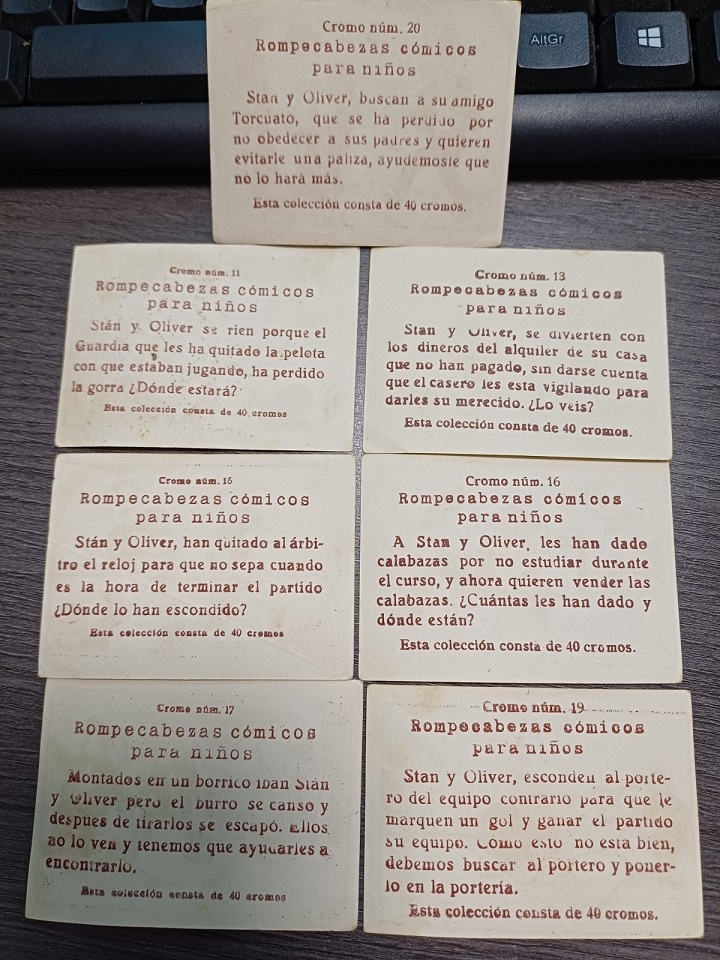 AltGr
Cromo núm. 20
Rompecabezas cómicos
para niños
Stan y Oliver, buscan a su amigo
Torcuato, que se ha perdido por
no obedecer a sus padres y quieren
evitarle una paliza, ayudemosle que
no lo hará más.
Esta colección consta de 40 cromos.
Cromo núm. 11
Rompecabezas cómicos
para niños
Stán y Oliver se rien porque el
Guardia que les ha quitado la pelota
con que estaban jugando, ha perdido
la gorra ¿Dónde estará?
Esta colección consta de 40 cromos
Cromo núm. 13
Rompecabezas cómicos
para niños
Stan y Oliver, se divierten con
los dineros del alquiler de su casa
que no han pagado, sin darse cuenta
que el casero les esta vigilando para
darles su merecido. ¿Lo veis?
Esta colección consta de 40 cromos.
Cromo núm. 15
Rompecabezas cómicos
para niños
Stán y Oliver, han quitado al árbi-
tro el reloj para que no sepa cuando
es la hora de terminar el partido
¿Dónde lo han escondido?
Esta colección consta de 40 cromos
Cromo núm. 16
Rompecabezas cómicos
para niños
A Stan y Oliver, les han dado
calabazas por no estudiar durante
el curso, y ahora quieren vender las
calabazas. ¿Cuántas les han dado y
dónde están?
Esta colección consta de 40 cromos.
Cromo núm. 17
Rompecabezas cómicos
para niños
Montados en un borrico iban Stán
y Oliver pero el burro se canso y
despues de tirarlos se escapó. Ellos
no lo ven y tenemos que ayudarles a
encontrarlo.
Esta colección consta de 40 cromos
Cromo núm. 19
Rompecabezas cómicos
para niños
Stan y Oliver, esconden al porte-
ro del equipo contrario para que le
marquen un gol y ganar el partido
su equipo. Como esto no esta bien,
debemos buscar al portero y poner-
lo en la portería.
Esta colección consta de 40 cromos.